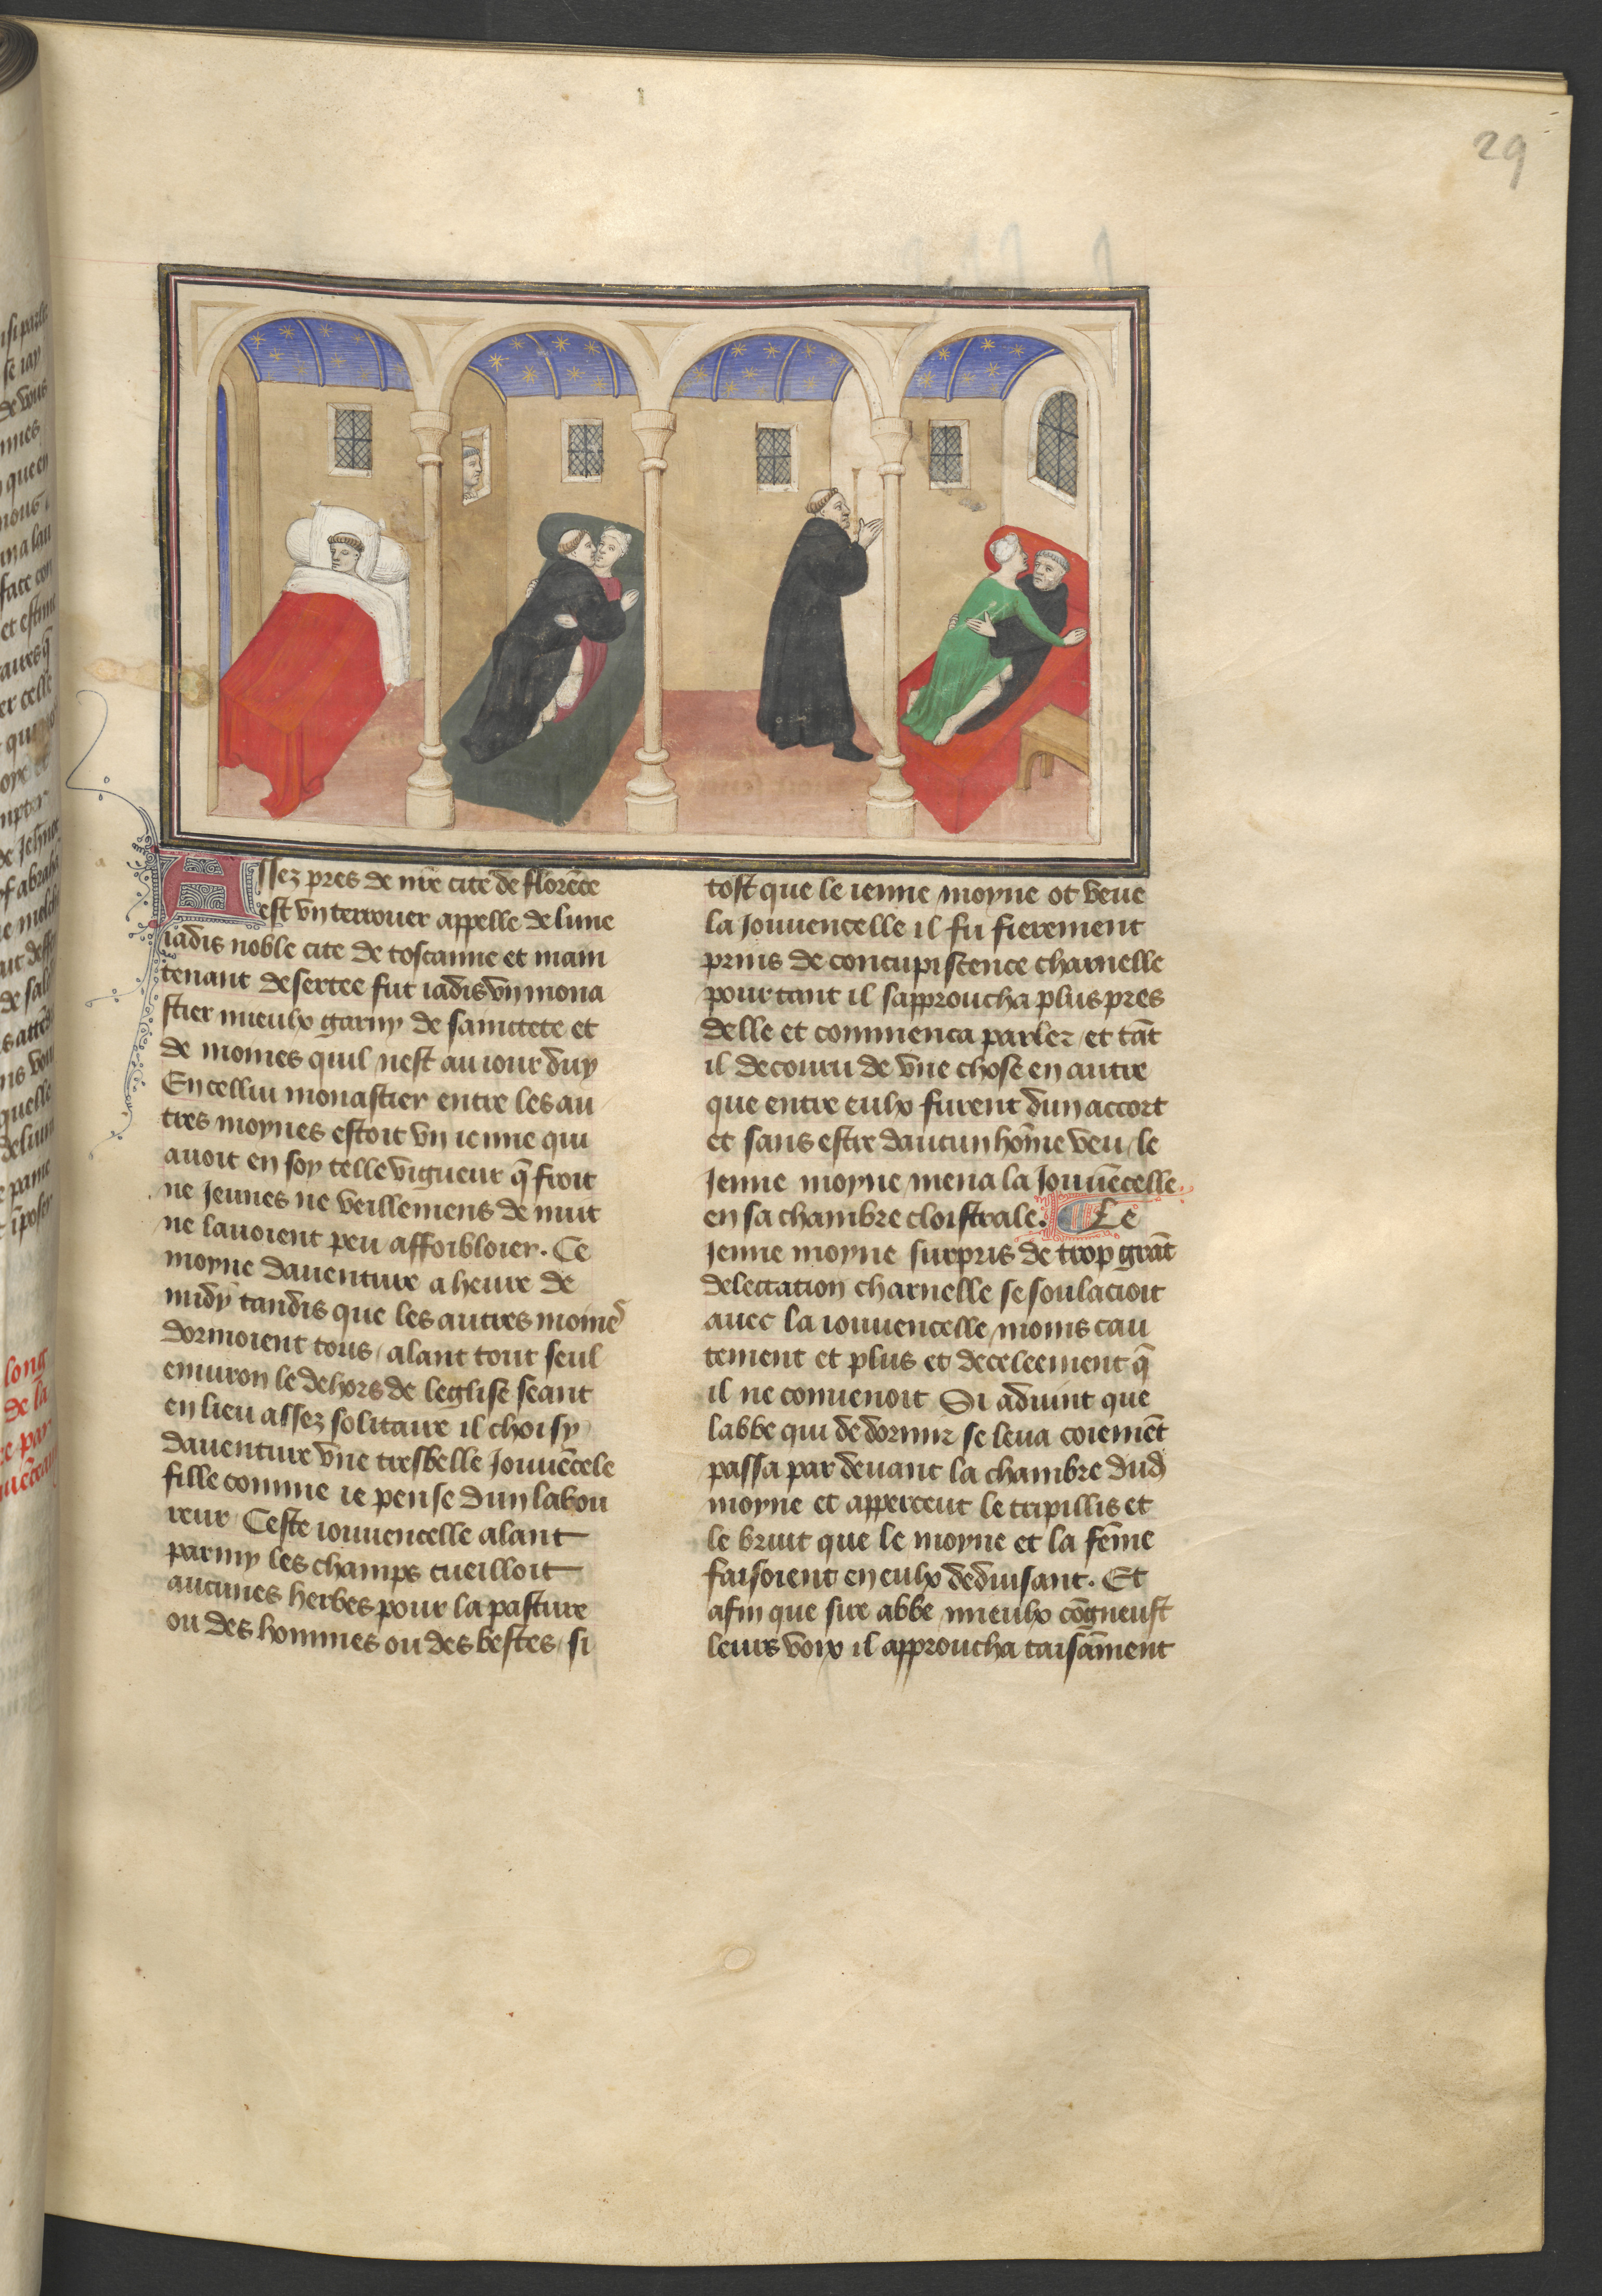 29
Assez pres de nr̃e cite de florẽce
est vn terrouer appelle de lune
iadis noble cite de toscanne et main
tenant desertee fut iadis vn mona
stier mieulx garny de sainctete et
de moines quil nest au iour duy
En cellui monastier entre les au
tres moynes estoit vn ienne qui
auoit en soy telle vigueur q̃ froit
ne Jeunes ne veillemens de nuit
ne lauoient peu affoibloier. Ce
moyne dauenture a heure de
midy tandis que les autres moines
dormoient tous / alant tout seul
enuiron le dehors de leglise seant
en lieu assez solitaire il choisy
dauenture vne tresbelle Jouuẽcele
fille comme ie pense dun labou
reur / Ceste iouuencelle alant
parmy les champs cueilloit
aucunes herbes pour la pasture
ou des hommes ou des bestes / si
tost que le ienne moyne ot veue
la Jouuencelle il fu fierement
prins de concupiscence charnelle
pour tant il sapproucha plus pres
delle et commenca parler / et tãt
il decouru de vne chose en autre
que entre eulx furent dun accort
et sans estre daucun hõme veu / le
Jenne moyne mena la Jouuẽcelle
en sa chambre cloistrale. Le
Jenne moyne surpris de trop grãt
delectation charnelle se soulacioit
auec la iouuencelle moins cau
tement et plus et deceleement q̃
il ne conuenoit Si aduint que
labbe qui de dormir se leua coiemẽt
passa par deuant la chambre dud
moyne et apperceut le tripillis et
le bruit que le moyne et la fẽme
faisoient en eulx deduisant. Et
afin que sire abbe mieulx cõgneust
leurs voix il approucha taisãment
long
de la